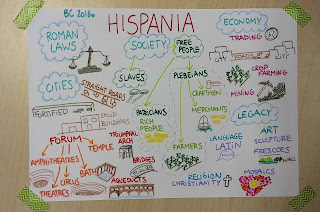 BC 2016
HISPANIA
ROMAN
LAWS
SOCIETY
FREE
PEOPLE
ECONOMY
TRADING
ROADS
CROP
FARMING
MINING
SLAVES
PLEBEIANS
CRAFTMEN
MERCHANTS
FARMERS
PATRICIANS
RICH
PEOPLE
CITIES
STRAIGHT ROADS
FORTIFIED
SOLID
BUILDINGS
FORUM
TEMPLE
AMPHITHEATRES
CIRCUS
THEATRES
BATH
TRIUMPHAL
ARCH
BRIDGES
AQUEDUCTS
LEGACY
LANGUAGE
LATIN
RELIGION
CHRISTIANITY
ART
SCULPTURE
FRESCOES
WALL
MOSAICS